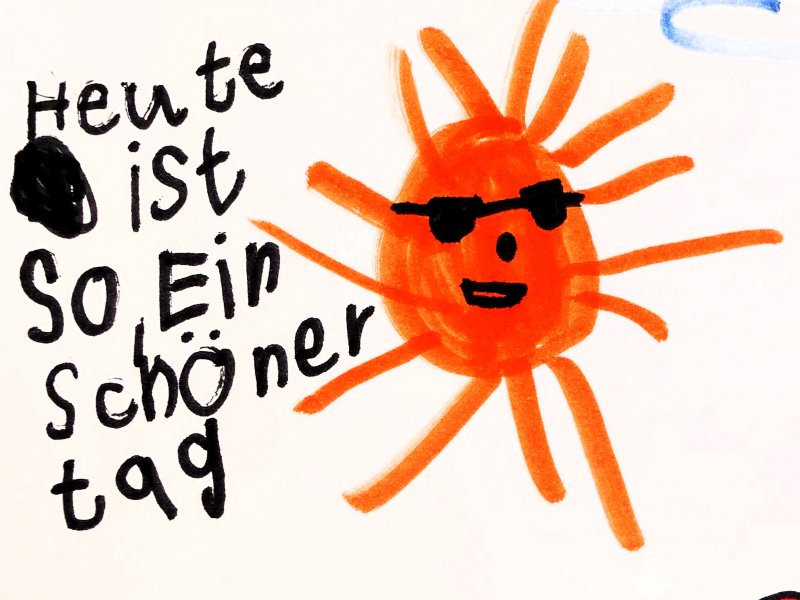 Heute
ist
So Ein
Schöner
tag